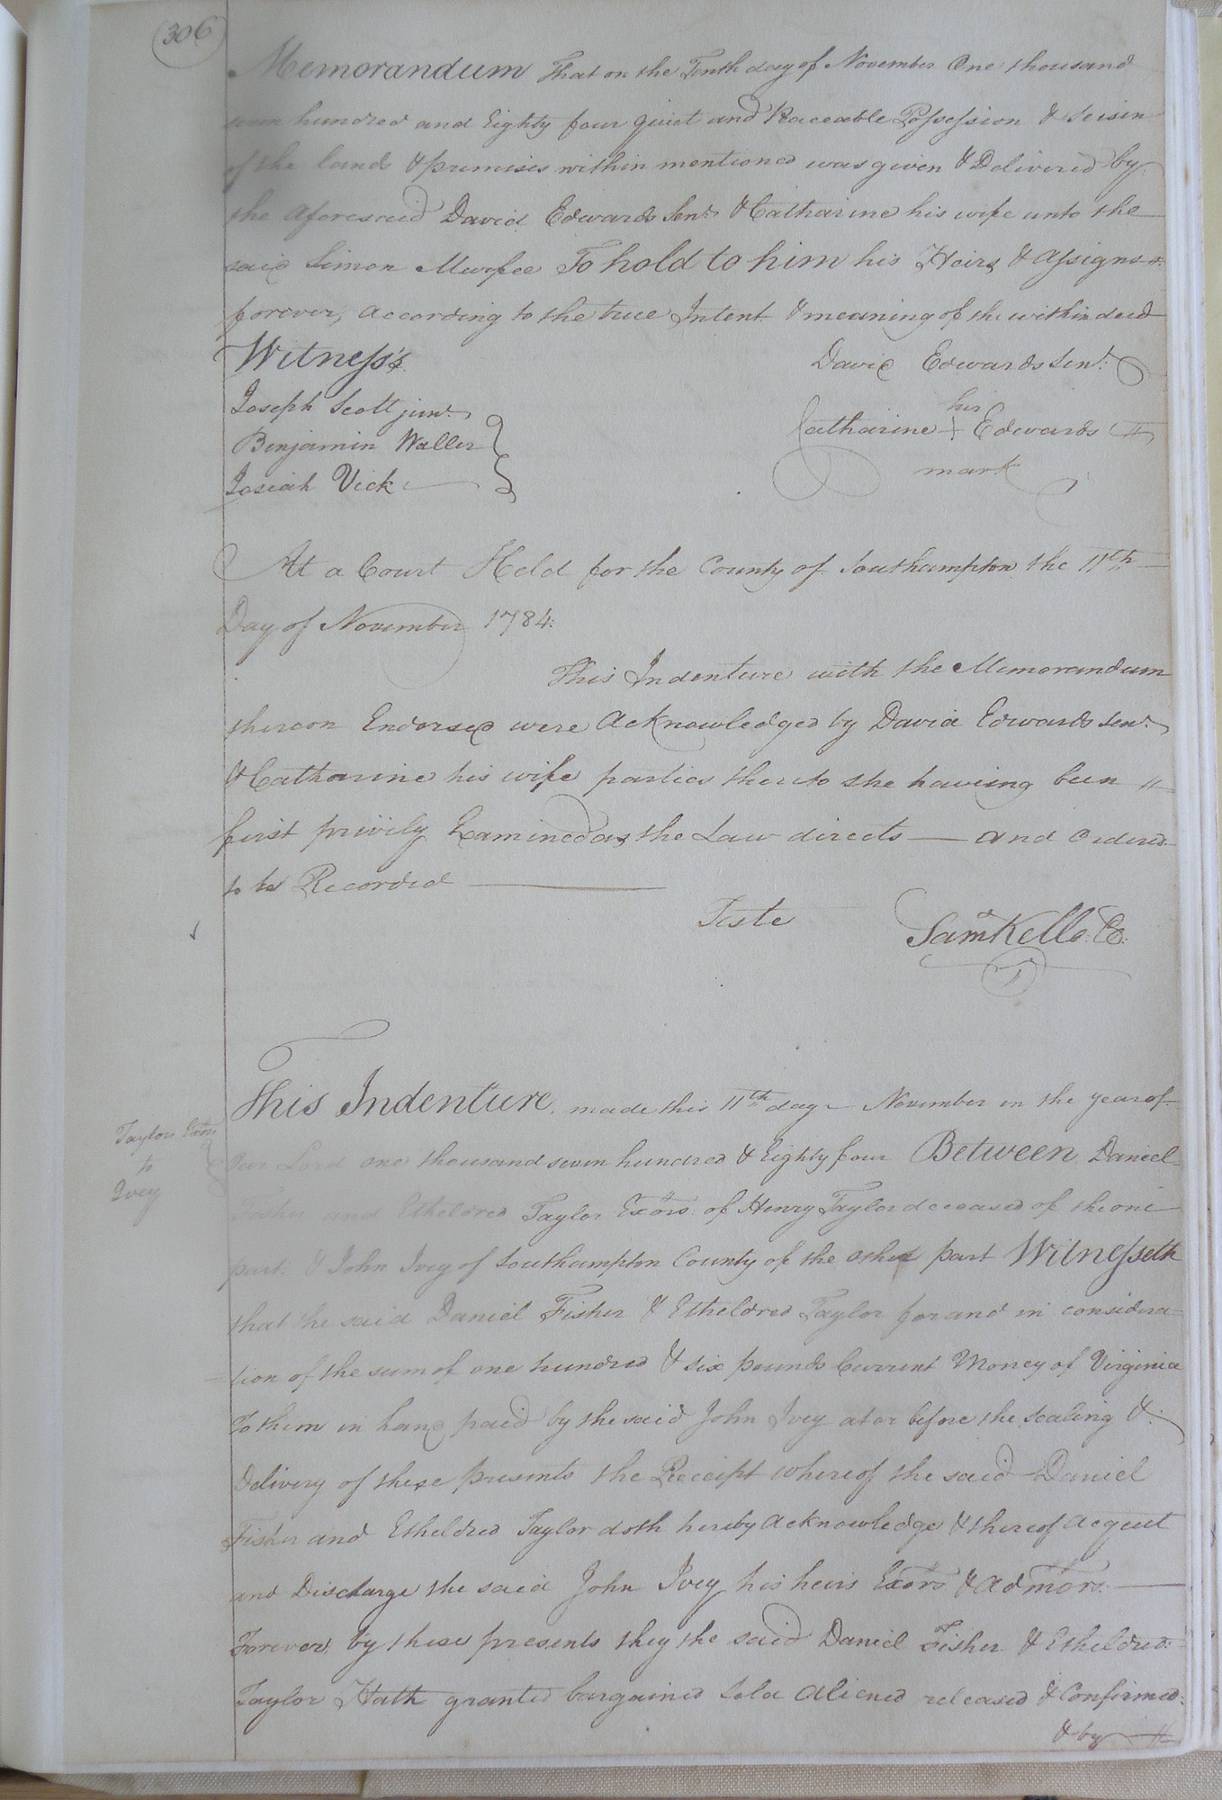 306
Memorandum That on the Tenth day of November One thousand
seven hundred and Eighty four quiet and Peaceable Possession & Seisin
of the land & premises within mentioned was given & Delivered by
the aforesaid David Edwards Senr. & Catharine his wife unto the
said Simon Murfee To hold to him his Heirs & assigns
forever, according to the true Intent & meaning of the within deed
Witness's
David Edwards Senr.
Joseph Scott junr.
his
Benjamin Waller
Catharine + Edwards
Josiah Vick
mark
At a Court Held for the County of Southampton the 11th
Day of November 1784:
This Indenture with the Memorandum
thereon Endorsed were Acknowledged by David Edwards Senr.
& Catharine his wife parties thereto she having been
first privily Examined as the Law directs — and Ordered
to be Recorded
Teste
Saml Kello. C.
Taylors Exors
to
Ivey
This Indenture made this 11th day November in the year of
Our Lord one thousand seven hundred & Eighty four Between Daniel
Fisher and Etheldred Taylor Exors. of Henry Taylor deceased of the one
part & John Ivey of Southampton County of the other part Witnesseth
that the said Daniel Fisher & Etheldred Taylor for and in considera=
=tion of the sum of one hundred & six pounds Current Money of Virginia
To them in hand paid by the said John Ivey at or before the Sealing &
Delivery of these presents the Receipt whereof the said Daniel
Fisher and Etheldred Taylor doth hereby acknowledge & thereof acquit
and Discharge the said John Ivey his heirs Exors & admors.
Forever, by these presents they the said Daniel Fisher & Etheldred
Taylor Hath granted bargained Sold aliened released & Confirmed:
& by